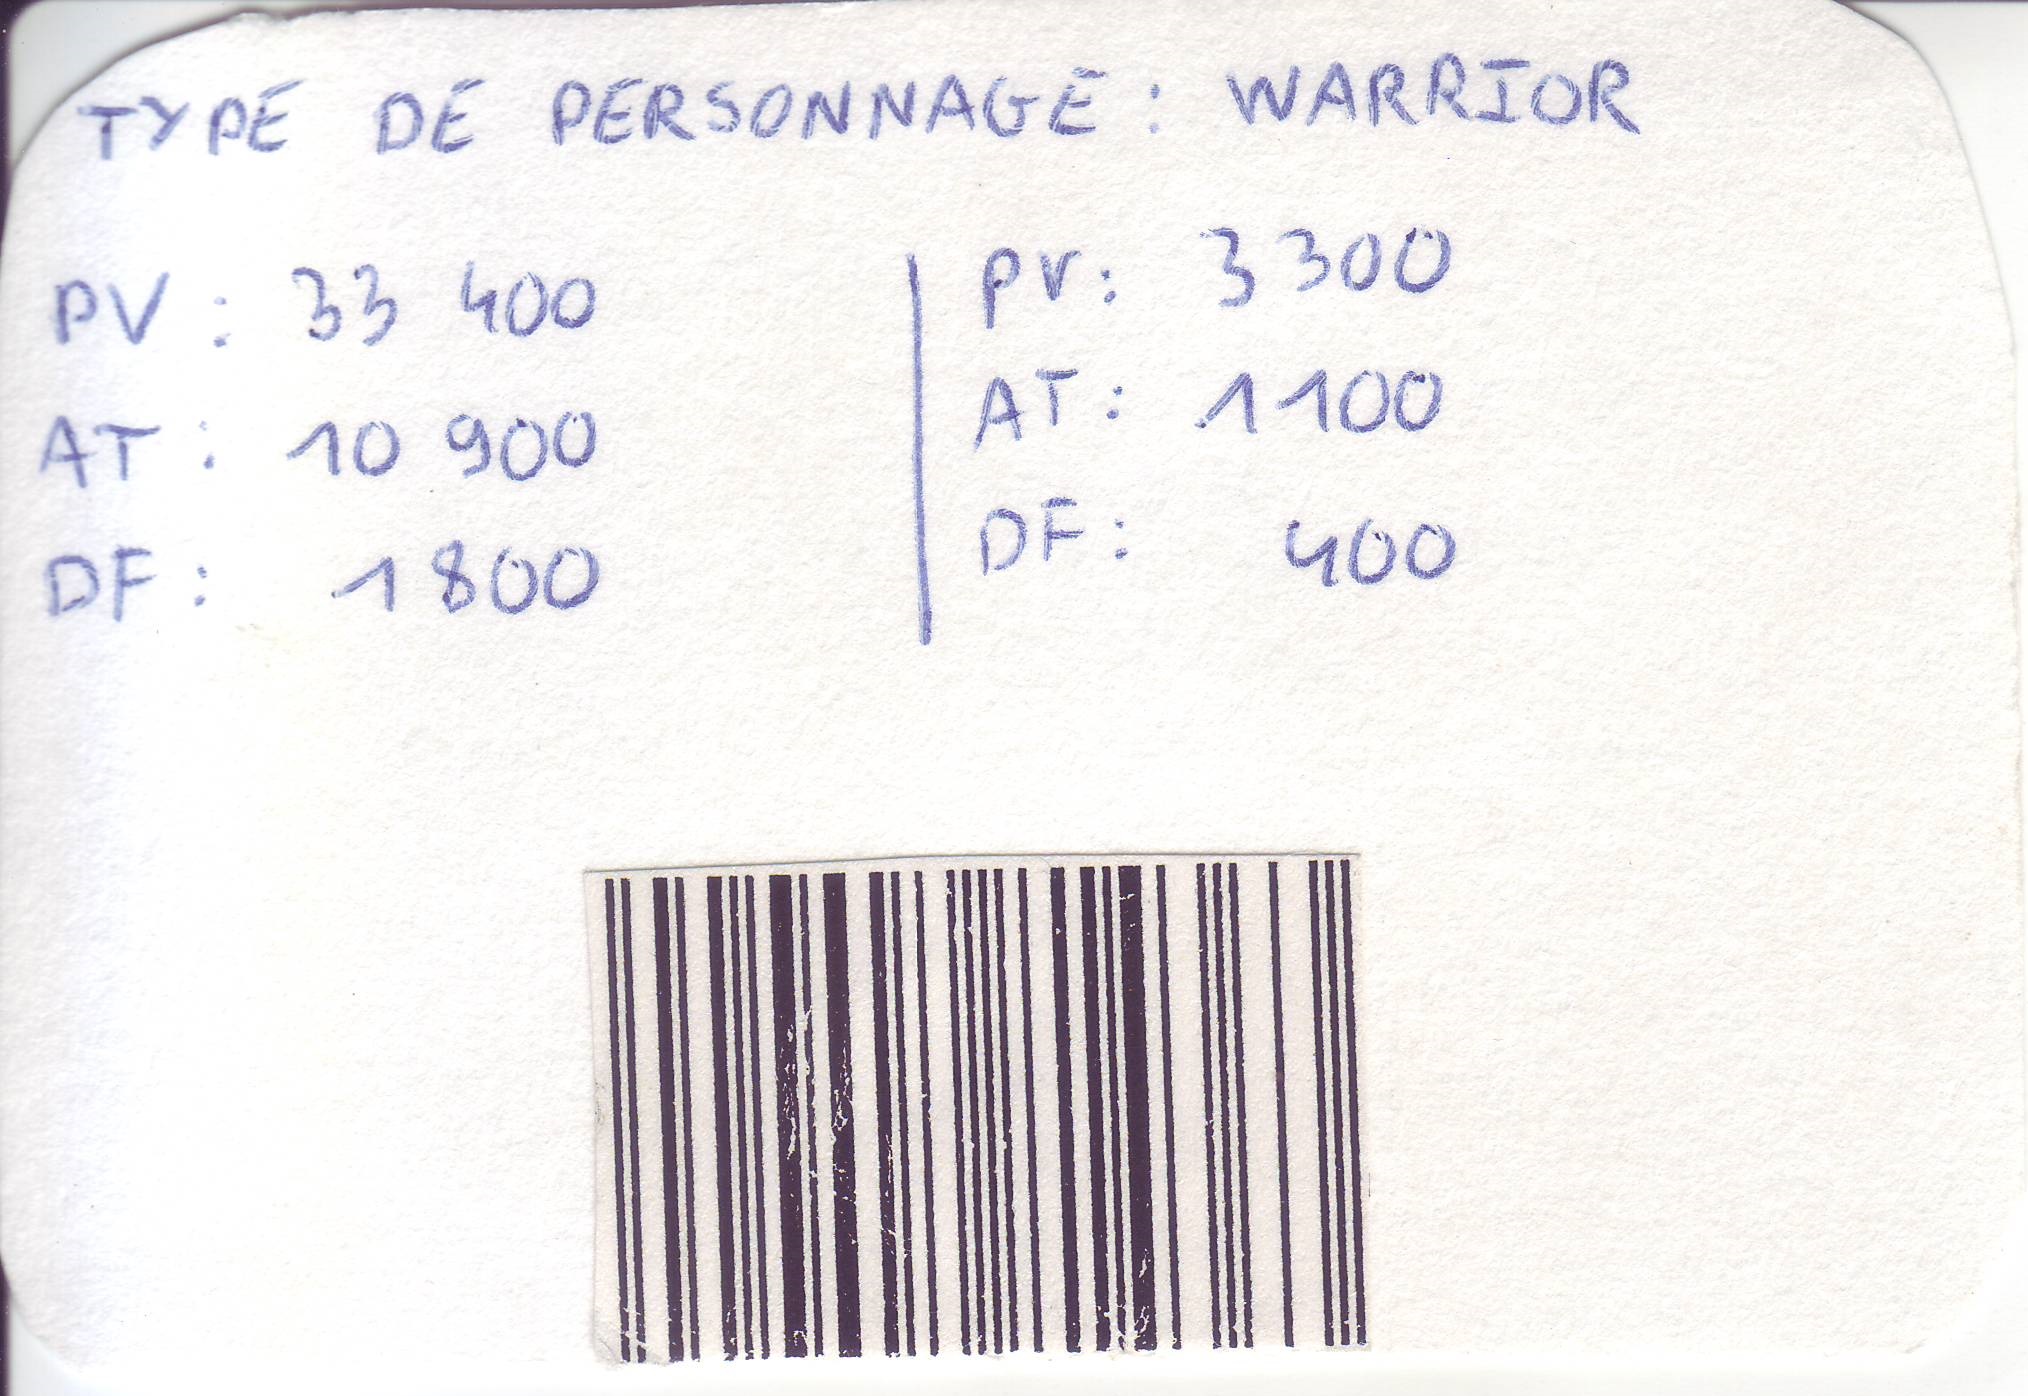 TYPE DE PERSONNAGE : WARRIOR
PV : 33 400
AT : 10 900
DF : 1800
PV : 3300
AT : 1100
DF : 400